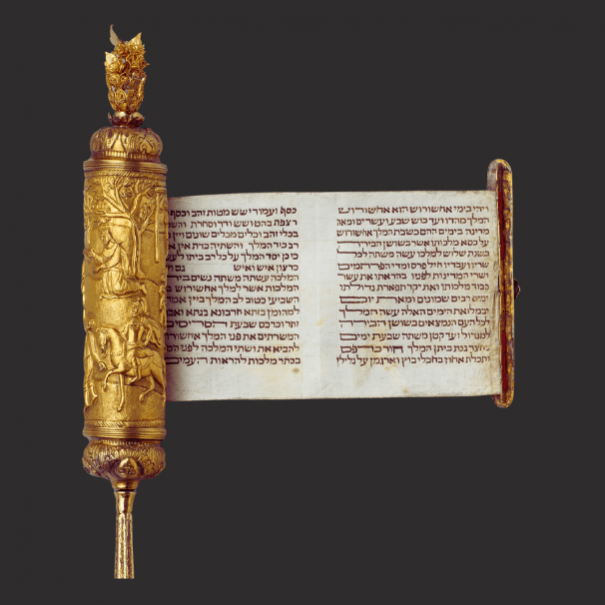 ויהי בימי אחשורוש הוא אחשורוש
המלך מהדו ועד כוש שבע ועשרים ומאה
מדינה בימים ההם כשבת המלך אחשורוש
על כסא מלכותו אשר בשושן הבירה
בשנת שלוש למלכו עשה משתה לכל
שריו ועבדיו חיל פרס ומדי הפרתמים
ושרי המדינות לפניו בהראתו את עשר
כבוד מלכותו ואת יקר תפארת גדולתו
ימים רבים שמונים ומאת יום
ובמלואת הימים האלה עשה המלך
לכל העם הנמצאים בשושן הבירה
למגדול ועד קטן משתה שבעת ימים
בחצר גנת ביתן המלך חור כרפס
ותכלת אחוז בחבלי בוץ וארגמן על גלילי
כסף ועמודי שש מטות זהב וכסף
רצפת בהט ושש ודר וסחרת
בכלי זהב וכלים מכלים שונים ויין
רב כיד המלך והשתיה כדת אין
כי כן יסד המלך על כל רב ביתו
כרצון איש ואיש גם
המלכה עשתה משתה נשים בית
המלכות אשר למלך אחשורוש
השביעי כטוב לב המלך ביין אמר
למהומן בזתא חרבונא בגתא
זתר וכרכס שבעת הסריסים
המשרתים את פני המלך אחשורוש
להביא את ושתי המלכה לפני
בכתר מלכות להראות העמים